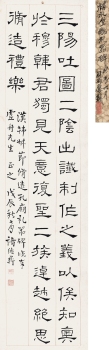 三陽吐圖二陰出讖制作之義以俟知奧
於穆韓君獨見天意復聖二族逴越絕思
脩造禮樂
漢韓 脩造孔廟禮器碑
先生正之戊辰秋 褚德彝